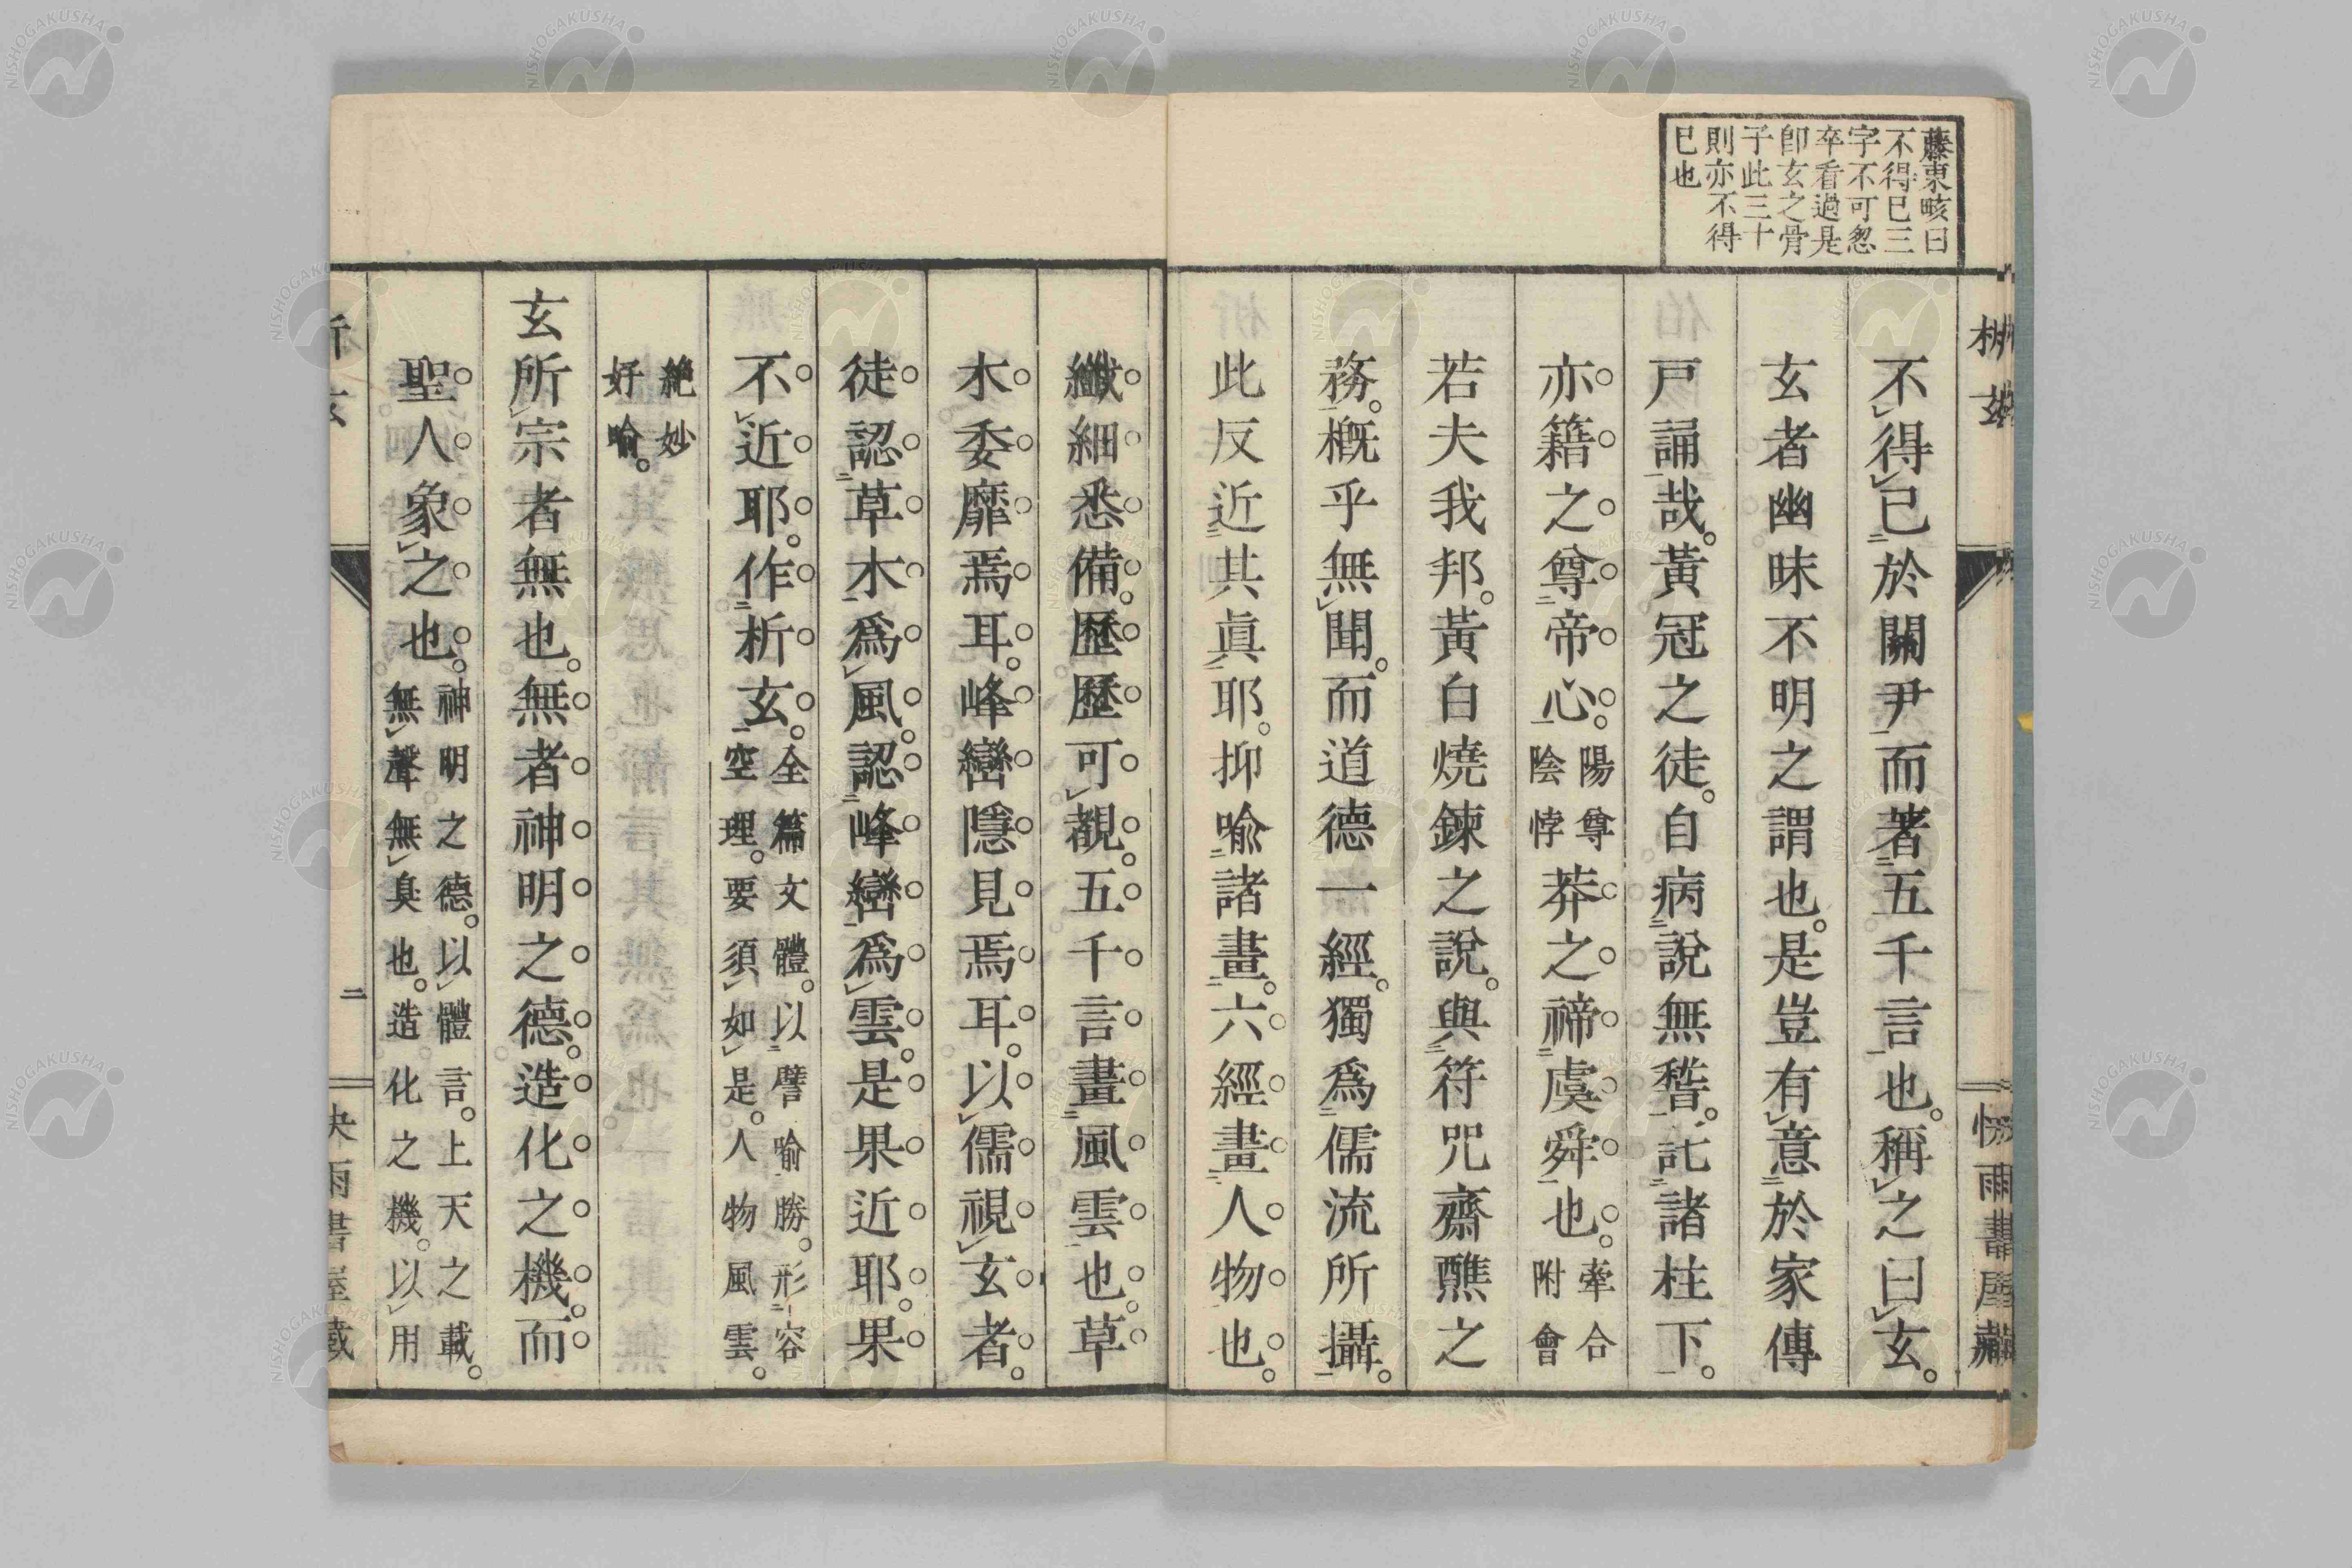 藤東畡曰
不得已三
字不可怱
卒看過是
卽玄之骨
子此三十
則亦不得
已也
析玄
快雨書屋藏
不得已於關尹而著五千言也。稱之曰玄。
玄者幽昧不明之謂也。是豈有意於家傳
戸誦哉。黃冠之徒。自病說無稽。託諸柱下。
亦籍之尊帝心。陽尊陰悖莽之禘虞舜也。牽合附會
若夫我邦。黃白燒鍊之說。與符咒齋醮之
務。概乎無聞。而道德一經。獨爲儒流所攝。
此反近其眞耶。抑喩諸畫。六經畫人物也。
纖細悉備。歷歷可覩。五千言畫風雲也。草
木委靡焉耳。峰巒隱見焉耳。以儒視玄者。
徒認草木爲風。認峰巒爲雲。是果近耶。果
不近耶。作析玄。全篇文體。以譬喩勝。形容空理。要須如是。人物風雲。
絶妙好喩。
玄所宗者無也。無者神明之德。造化之機。而
聖人象之也。神明之德。以體言。上天之載。無聲無臭也。造化之機。以用
析玄
二
快雨書屋藏
NISHOGAKUSHA